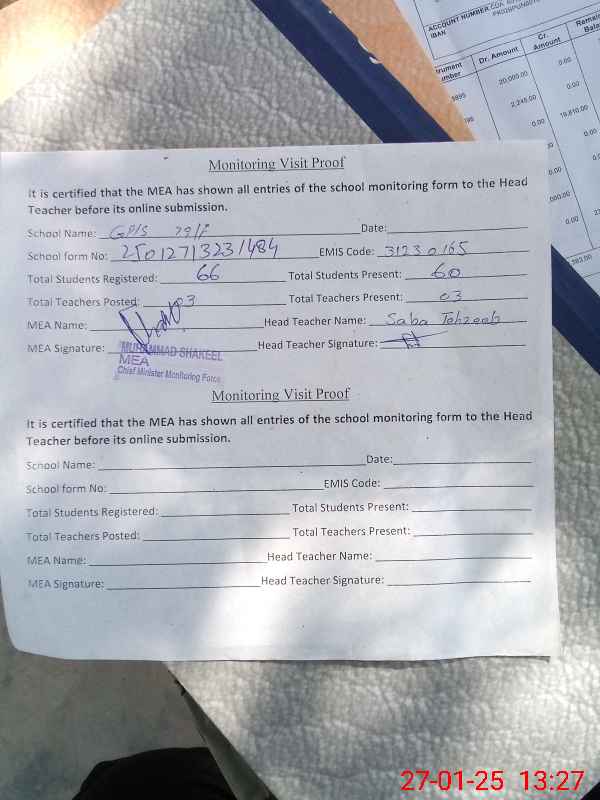 ACCOUNT NUMBER
IBAN
Dr. Amount
Cr. Amount
20,000.00
0.00
2,245.00
0.00
0.00
19,810.00
Monitoring Visit Proof
It is certified that the MEA has shown all entries of the school monitoring form to the Head
Teacher before its online submission.
School Name: GPS 79/F Date:
School form No: 25012713231484 EMIS Code: 31230165
Total Students Registered: 66 Total Students Present: 60
Total Teachers Posted: 03 Total Teachers Present: 03
MEA Name: Head Teacher Name: Saba Tehzeeb
MEA Signature: MUHAMMAD SHAKEEL Head Teacher Signature:
MEA
Chief Minister Monitoring Force
Monitoring Visit Proof
It is certified that the MEA has shown all entries of the school monitoring form to the Head
Teacher before its online submission.
School Name: Date:
School form No: EMIS Code:
Total Students Registered: Total Students Present:
Total Teachers Posted: Total Teachers Present:
MEA Name: Head Teacher Name:
MEA Signature: Head Teacher Signature:
27-01-25 13:27